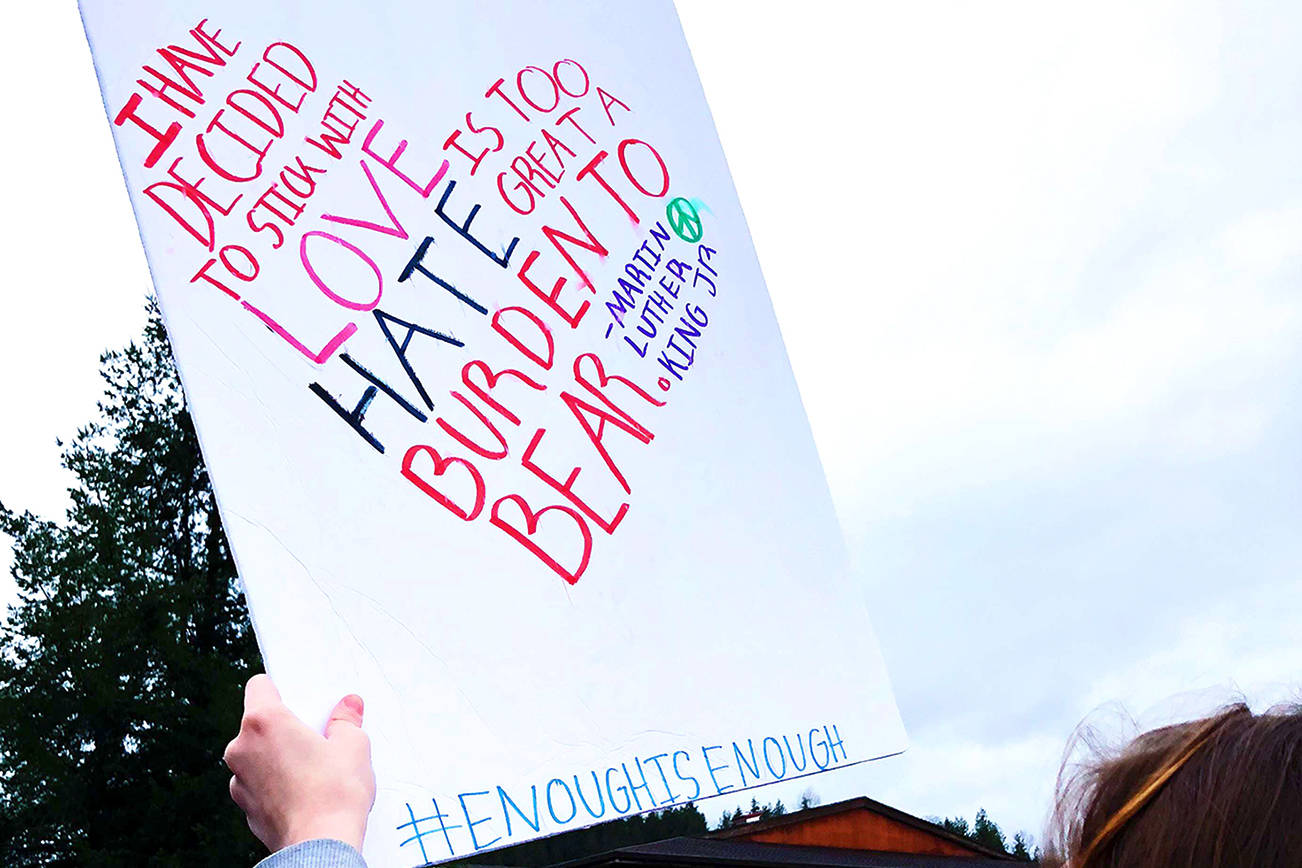 I HAVE
DECIDED
TO STICK WITH
LOVE
HATE
IS TOO
GREAT A
BURDEN TO
BEAR.
-MARTIN
LUTHER
KING JR
#ENOUGHISENOUGH